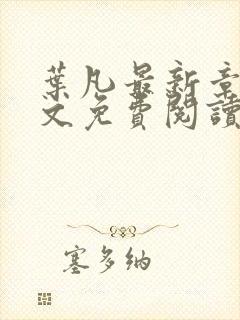 葉凡最新章
文免費閱讀
塞多納